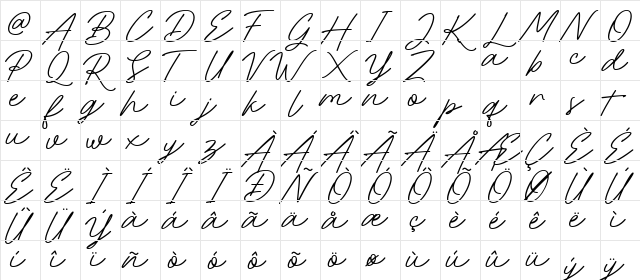 @ A B C D E F G H I J K L M N O
P Q R S T U V W X Y Z a b c d
e f g h i j k l m n o p q r s t
u v w x y z À Á Â Ã Ä Å Æ Ç È É
Ê Ë Ì Í Î Ï Ð Ñ Ò Ó Ô Õ Ö Ø Ù Ú
Û Ü Ý à á â ã ä å æ ç è é ê ë ì
í î ï ñ ò ó ô õ ö ø ù ú û ü ý ÿ